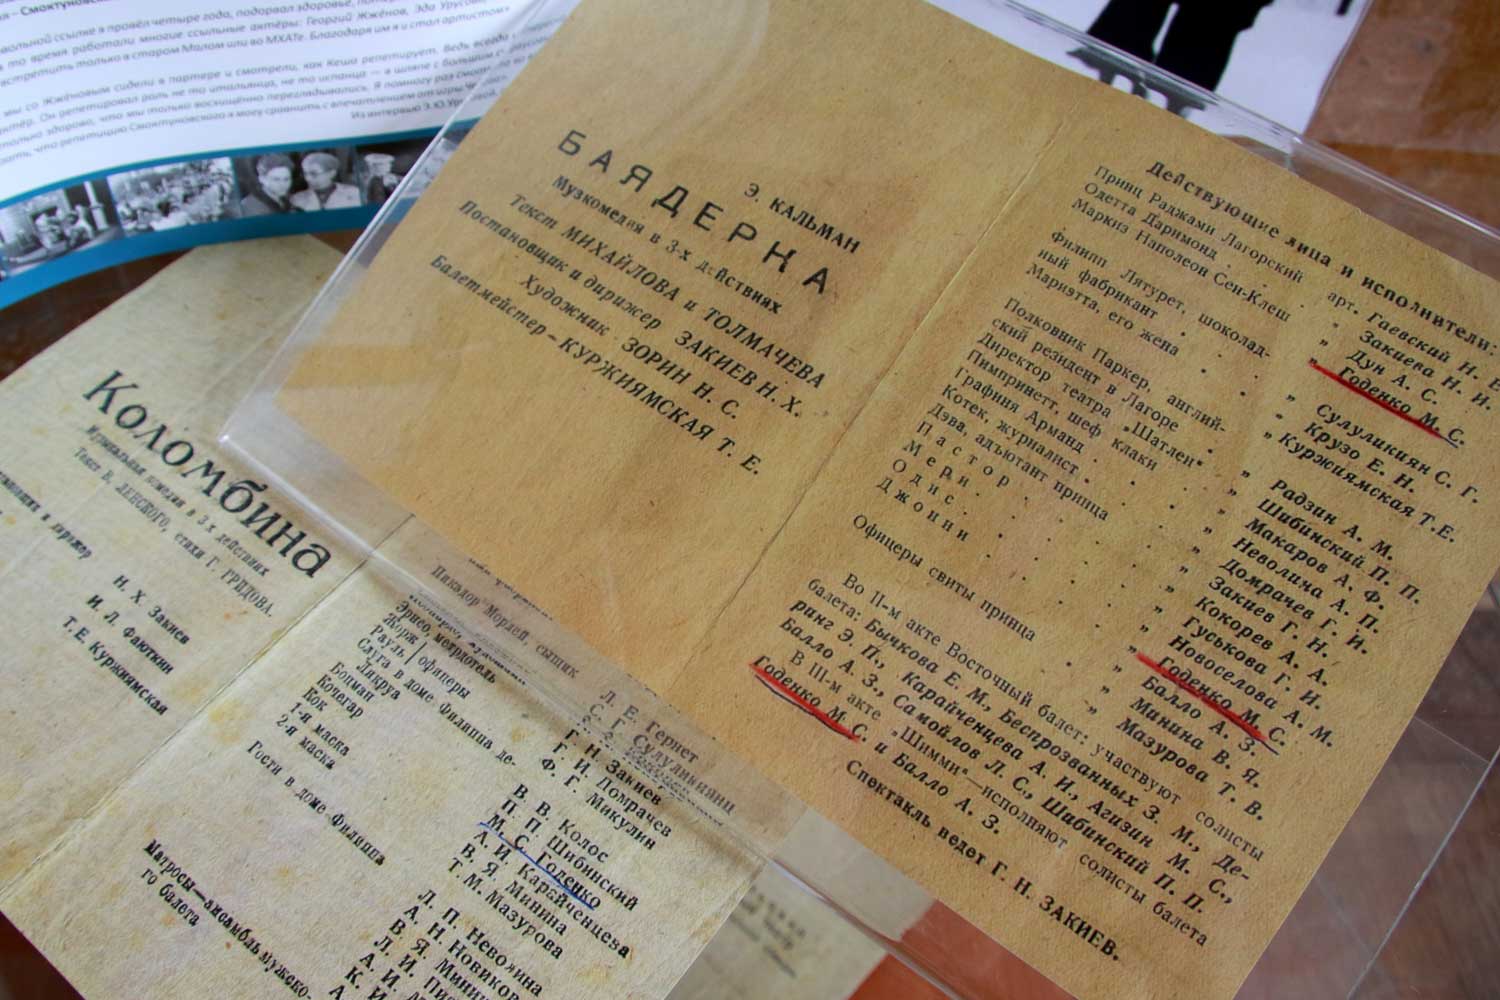 – Смоктуновск
вольной ссылке я провёл четыре года, подорвал здоровье,
то время работали многие ссыльные актёры: Георгий Жжёнов, Эда Урусова
встретить только в старом Малом или во МХАТе. Благодаря им я и стал артистом»
мы со Жжёновым сидели в партере и смотрели, как Кеша репетирует. Ведь всегда
актёр. Он репетировал роль не то итальянца, не то испанца — в шляпе с большим
только здорово, что мы только восхищённо переглядывались. Я помногу раз
зать, что репетицию Смоктуновского я могу сравнить с впечатлением от игры
Из интервью Э.Ю. Урусовой
Э. КАЛЬМАН
БАЯДЕРКА
Музкомедия в 3-х действиях
Текст МИХАЙЛОВА и ТОЛМАЧЕВА
Постановщик и дирижер ЗАКИЕВ Н. Х.
Художник ЗОРИН Н. С.
Балетмейстер – КУРЖИЯМСКАЯ Т. Е.
Действующие лица и исполнители:
Принц Раджами Лагорский арт. Гаевский Н. Е.
Одетта Даримонд . . „ Закиева Н. И.
Маркиз Наполеон Сен-Клеш „ Дун А. С.
„ Годенко М. С.
Филипп Лятурет, шоколад-
ный фабрикант . . . „ Сулуликиян С. Г.
Мариэтта, его жена . . „ Крузо Е. Н.
„ Куржиямская Т.Е.
Полковник Паркер, англий-
ский резидент в Лагоре „ Радзин А. М.
Директор театра „Шатлен“ „ Шибинский П. П.
Пимпринетт, шеф клаки „ Макаров А. Ф.
Графиня Арманд . . . „ Неволина А. П.
Котек, журналист . . . „ Домрачев Г. И.
Дэва, адъютант принца „ Закиев Г. Н.
Пастор . . . „ Кокорев А. А.
Мери . . . „ Гуськова Г. И.
Одис . . . „ Новоселова А. М.
Джонни . . . „ Годенко М. С.
Офицеры свиты принца . „ Балло А. З.
„ Минина В. Я.
„ Мазурова Т. В.
Во II-м акте Восточный балет: участвуют солисты
балета: Бычкова Е. М., Беспрозванных З. М., Де-
ринг Э. П., Карайченцева А. И., Агизин М. С.,
Балло А. З., Самойлов Л. С., Шибинский П. П.
В III-м акте „Шимми“—исполняют солисты балета
Годенко М. С. и Балло А. З.
Спектакль ведет Г. Н. ЗАКИЕВ.
Коломбина
Музыкальная комедия в 3-х действиях
Текст В. ЛЕНСКОГО, стихи Г. ГРИДОВА.
Н. Х. Закиев
И. Л. Фаюткин
Т. Е. Куржиямская
Пикадор Морлей, сыщик
Эрнео, метрдотель
Жорж
Рауль
офицеры
Слуга в доме Филиппа де-
Лякруа
Боцман
Кочегар
Кок
1-я маска
2-я маска
Гости в доме Филиппа
Матросы—ансамбль мужско-
го балета
Л. Е. Гернет
С. Г. Сулуликиянц
Г. Н. Закиев
Г. И. Домрачев
Ф. Г. Микулин
В. В. Колос
П. П. Шибинский
М. С. Годенко
А. И. Карайченцева
В. Я. Минина
Т. М. Мазурова
Л. П. Неволина
А. Н. Новиков
В. Я.
Л. И.
А. И.
К. И.